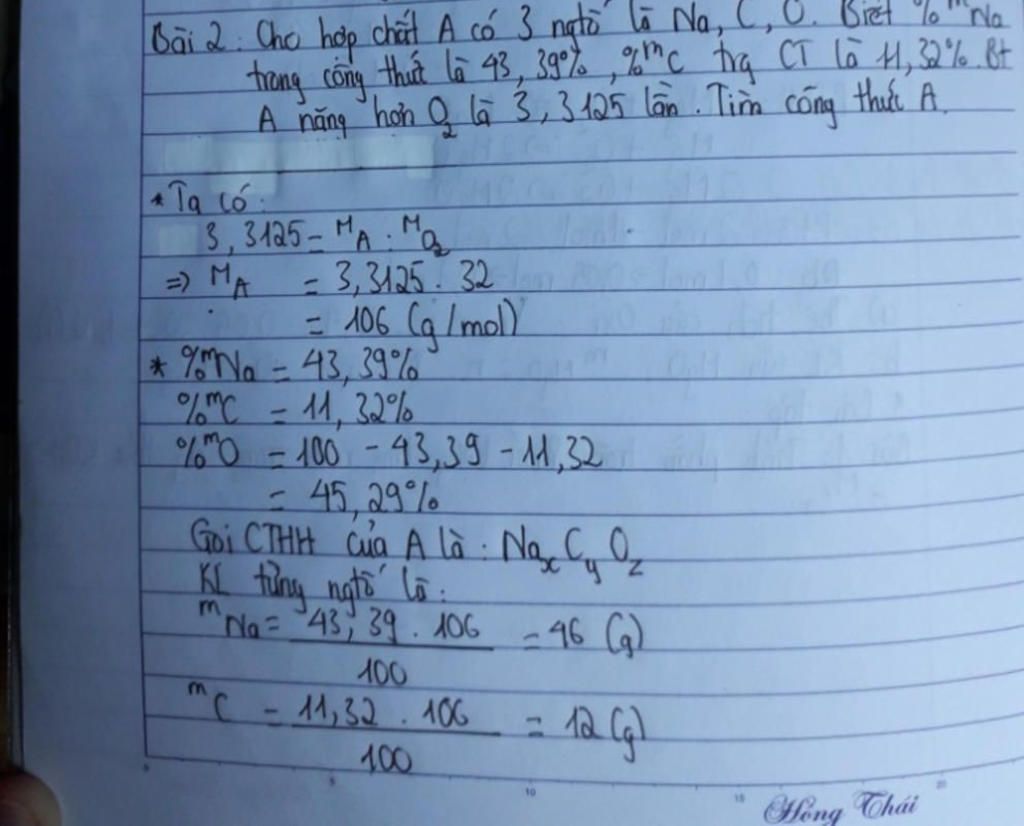 Bài 2: Cho hợp chất A có 3 ngtố là Na, C, O. Biết %mNa
trong công thức là 43,39%, %mC trg CT là 11,32%. Bt
A nặng hơn O2 là 3,3125 lần. Tìm công thức A.
* Ta có:
3,3125 = MA : MO2
=> MA = 3,3125 . 32
= 106 (g/mol)
* %mNa = 43,39%
%mC = 11,32%
%mO = 100 - 43,39 - 11,32
= 45,29%
Gọi CTHH của A là: NaxCyOz
KL từng ngtố là:
mNa = 43,39 . 106 / 100 = 46 (g)
mC = 11,32 . 106 / 100 = 12 (g)
5 10 15 20
Hồng Thái